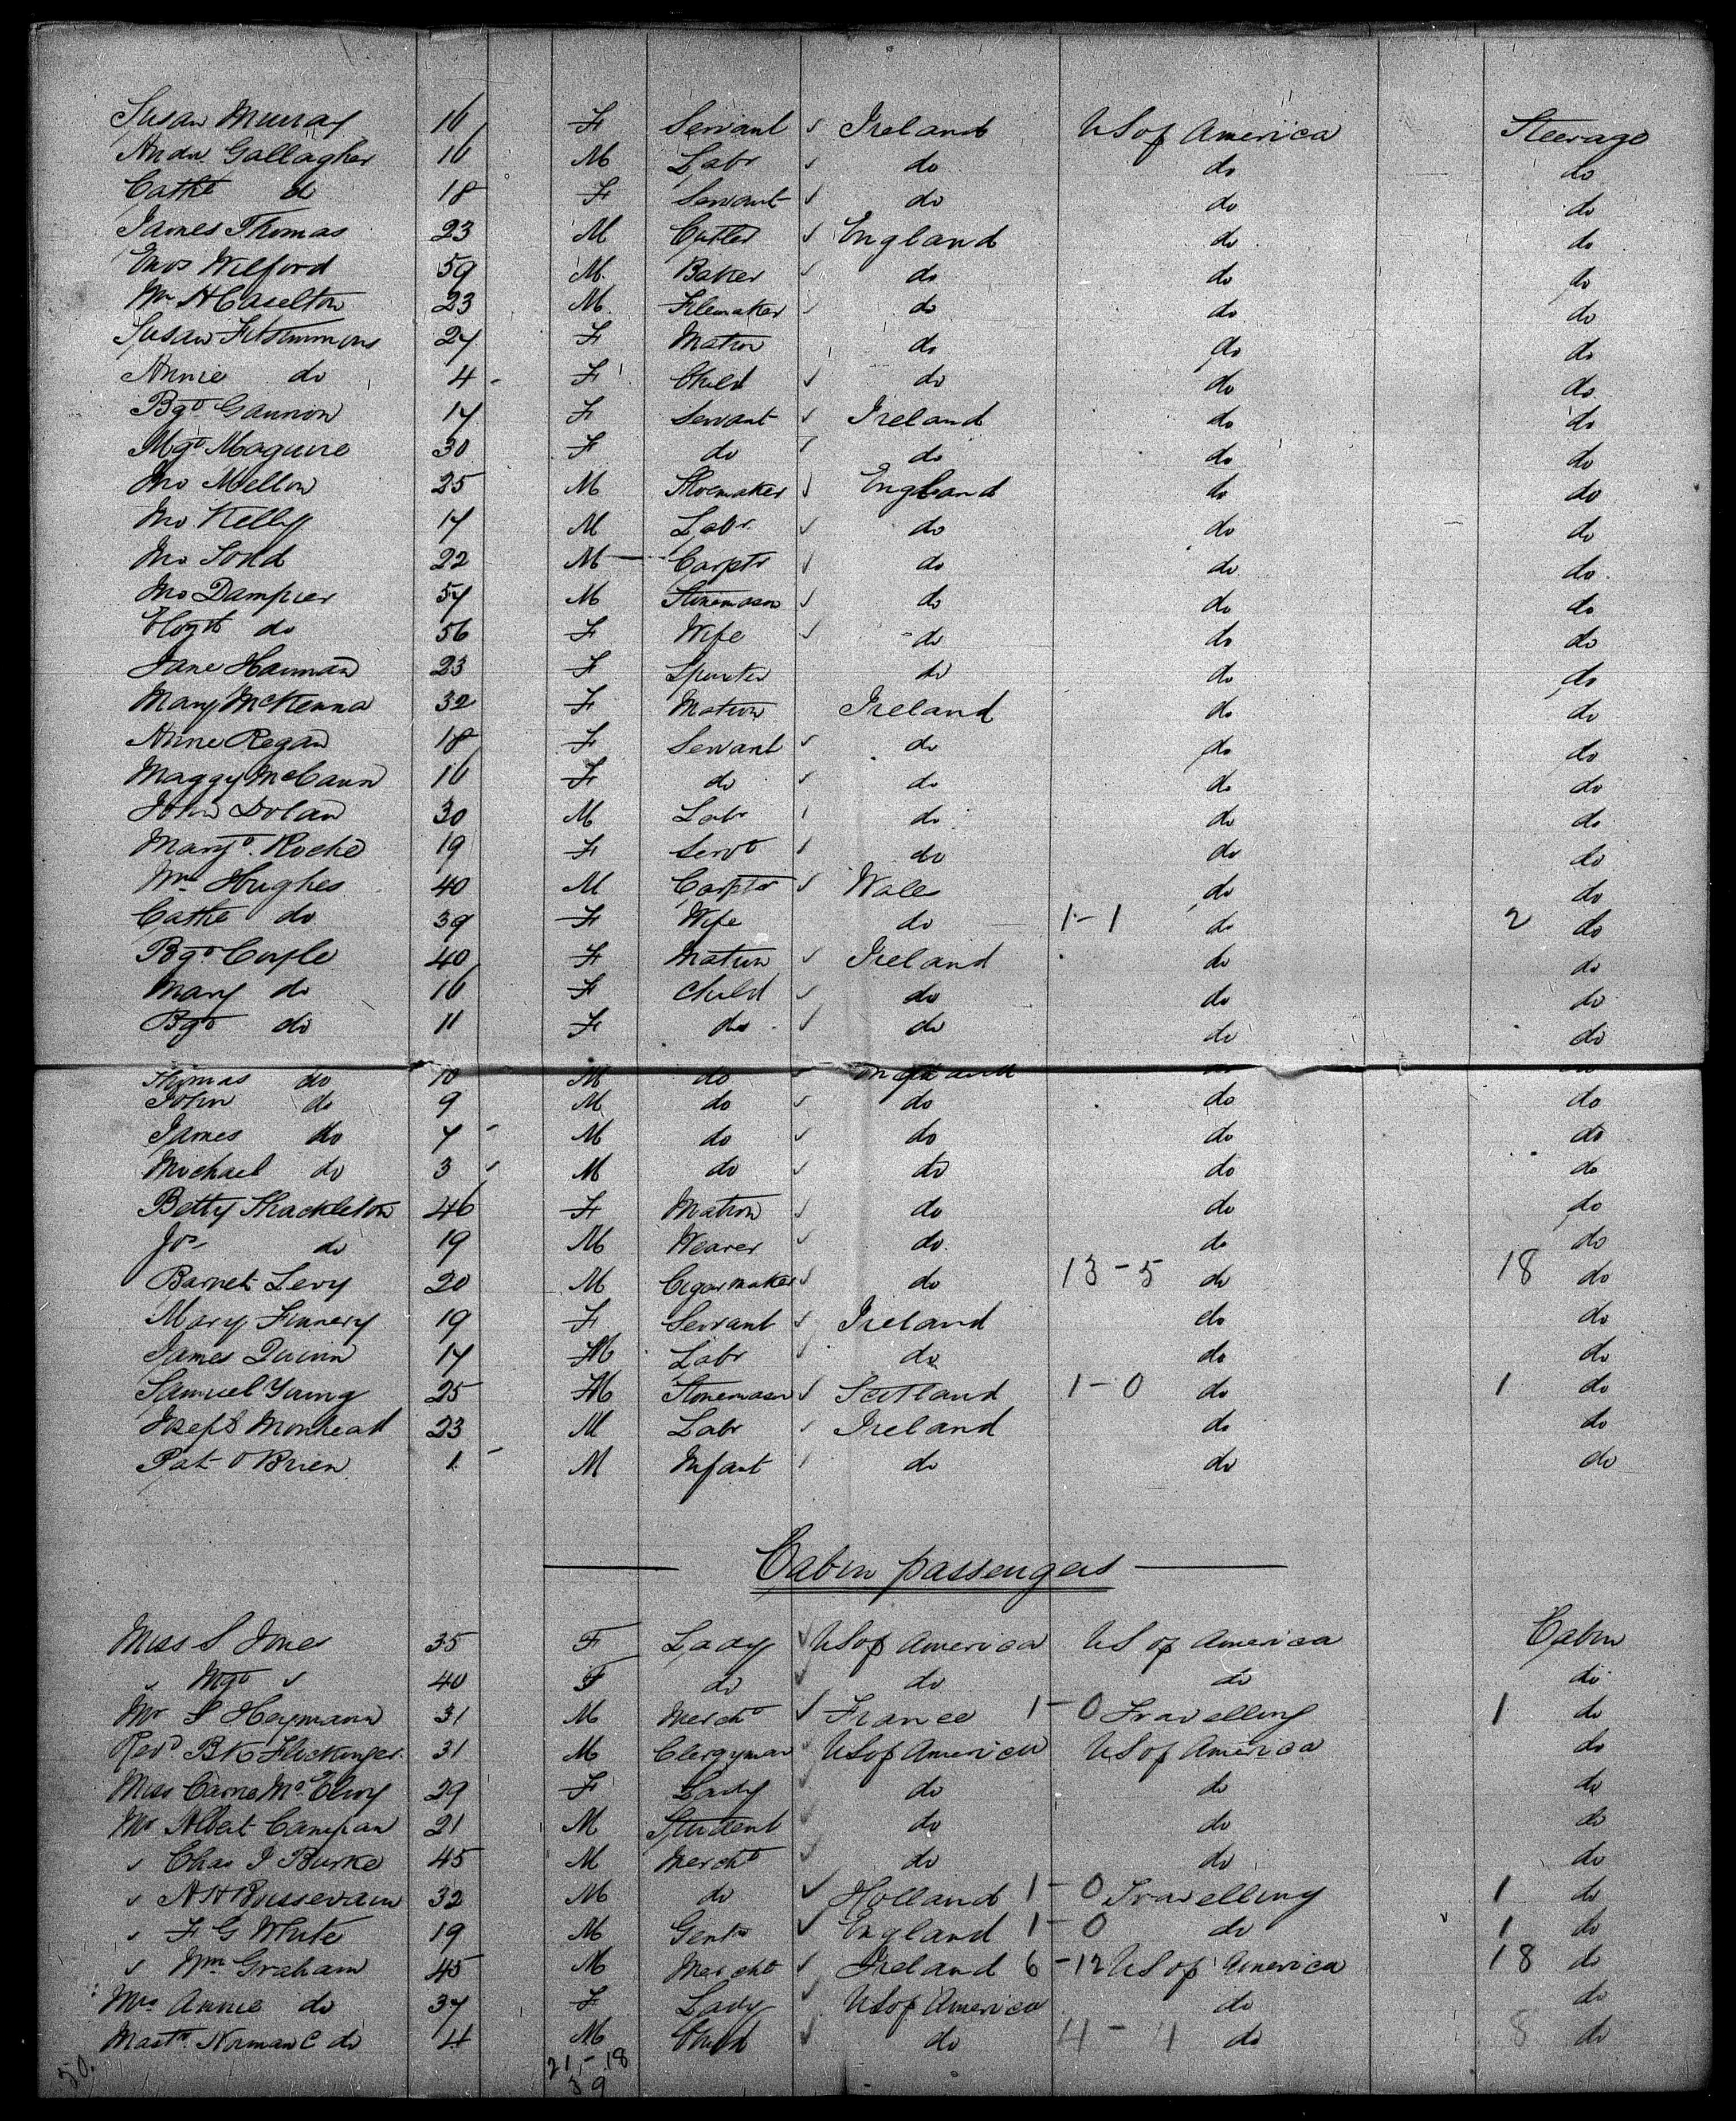 Susan Murray 16 F Servant ✓ Ireland US of America Steerage
Andw Gallagher 16 M Labr ✓ do do do
Cathe do 18 F Servant ✓ do do do
James Thomas 23 M Cutler ✓ England do do
Enos Wilford 59 M Baker ✓ do do do
Wm H Caselton 23 M Filemaker ✓ do do do
Susan Fitsimmons 27 F Matron do do do
Annie do 4 F Child ✓ do do do
Bgt Gannon 17 F Servant ✓ Ireland do do
Mgt Maguire 30 F do do do do
Jno Mellon 25 M Shoemaker ✓ England do do
Jno Kelly 17 M Labr ✓ do do do
Jno Tond 22 M Carptr ✓ do do do
Jno Dampier 57 M Stonemason ✓ do do do
do 56 F Wife ✓ do do do
Jane Hannan 23 F Spinster do do do
Mary McKenna 32 F Matron Ireland do do
Anne Regan 18 F Servant ✓ do do do
Maggy McCann 16 F do ✓ do do do
John Dolan 30 M Labr do do do
Margt Roche 19 F Servt do do do
Wm Hughes 40 M Carptr ✓ Wales do do
Cathe do 39 F Wife do 1-1 do 2 do
Bgt Coyle 40 F Matron ✓ Ireland do do
Mary do 16 F Child ✓ do do do
Bgt do 11 F do ✓ do do do
Thomas do 10 M do ✓ England do do
John do 9 M do ✓ do do do
James do 7 M do ✓ do do do
Michael do 3 M do ✓ do do do
Betty Shackleton 46 F Matron ✓ do do do
Jos do 19 M Weaver ✓ do do do
Barnet Levy 20 M Cigarmaker ✓ do 13-5 do 18 do
Mary Finnery 19 F Servant ✓ Ireland do do
James Quinn 17 M Labr ✓ do do do
Samuel Young 25 M Stonemason ✓ Scotland 1-0 do 1 do
Joseph Morhead 23 M Labr ✓ Ireland do do
Pat O Brien 1 M Infant do do do
Cabin passengers
Miss S Jones 35 F Lady ✓ US of America US of America Cabin
" Mgt " 40 F do ✓ do do do
Mr S Heymann 31 M Mercht ✓ France 1-0 Travelling 1 do
Revd BK Flickinger 31 M Clergyman ✓ US of America US of America do
Miss Carrie McElroy 29 F Lady ✓ do do do
Mr Albert Campau 21 M Student ✓ do do do
" Chas J Burke 45 M Mercht ✓ do do do
" AH Bussevain 32 M do ✓ Holland 1-0 Travelling 1 do
" F G White 19 M Gentn ✓ England 1-0 do 1 do
" Wm Graham 45 M Mercht ✓ Ireland 6-12 US of America 18 do
Mrs Annie do 37 F Lady ✓ US of America do do
Mastr Norman C do 4 M Child ✓ do 4-4 do 8 do
21-18
39
50.